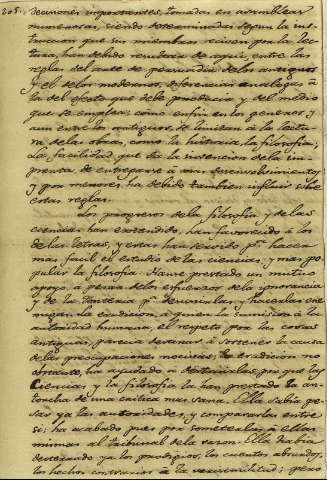 205.
decisiones importantes, tomadas en asambleas
numerosas, siendo determinadas segun la ins-
truccion que sus miembros reciven por la lec-
tura, han debido resultar de aqui, entre las
reglas del arte de persuadir de los antiguos
y el de los modernos, diferencias analogas à
la del efecto que debe producir y del medio
que se emplea: como enfin en los generos, y
aun entre los antiguos, se limitan à la lectu-
ra de las obras, como la historia, la filosofia;
La facilidad, que da la invencion de la im-
prenta de entregarse à mas desenvolvimientos
y pormenores, ha debido tambien influir sobre
estas reglas.
Los progresos de la filosofia y de las
ciencias han extendido, han favorecido à los
de las letras, y estas han servido p.ª hacer
mas facil el estudio de las ciencias, y mas po-
pular la filosofia. Hanse prestado un mutuo
apoyo, à pesar de los esfuerzos de la ignorancia
y de la tonteria p.ª desunirlas, y hacerlas ene-
migas. La erudicion, à quien la sumision à la
autoridad humana, el respeto por las cosas
antiguas, parecia destinar à sostener la causa
de las preocupaciones nocivas; la erudicion no
obstante, ha ayudado à destruirlas, por que las
Ciencias, y la filosofia la han prestado la an-
torcha de una critica mas sana. Ella sabia pe-
sar ya las autoridades, y compararlas entre
si; ha acabado pues por someterlas à ellas
mismas al tribunal de la razon. Ella habia
desterrado ya los prodigios, los cuentos absurdos,
los hechos contrarios à la verisimilitud; pero